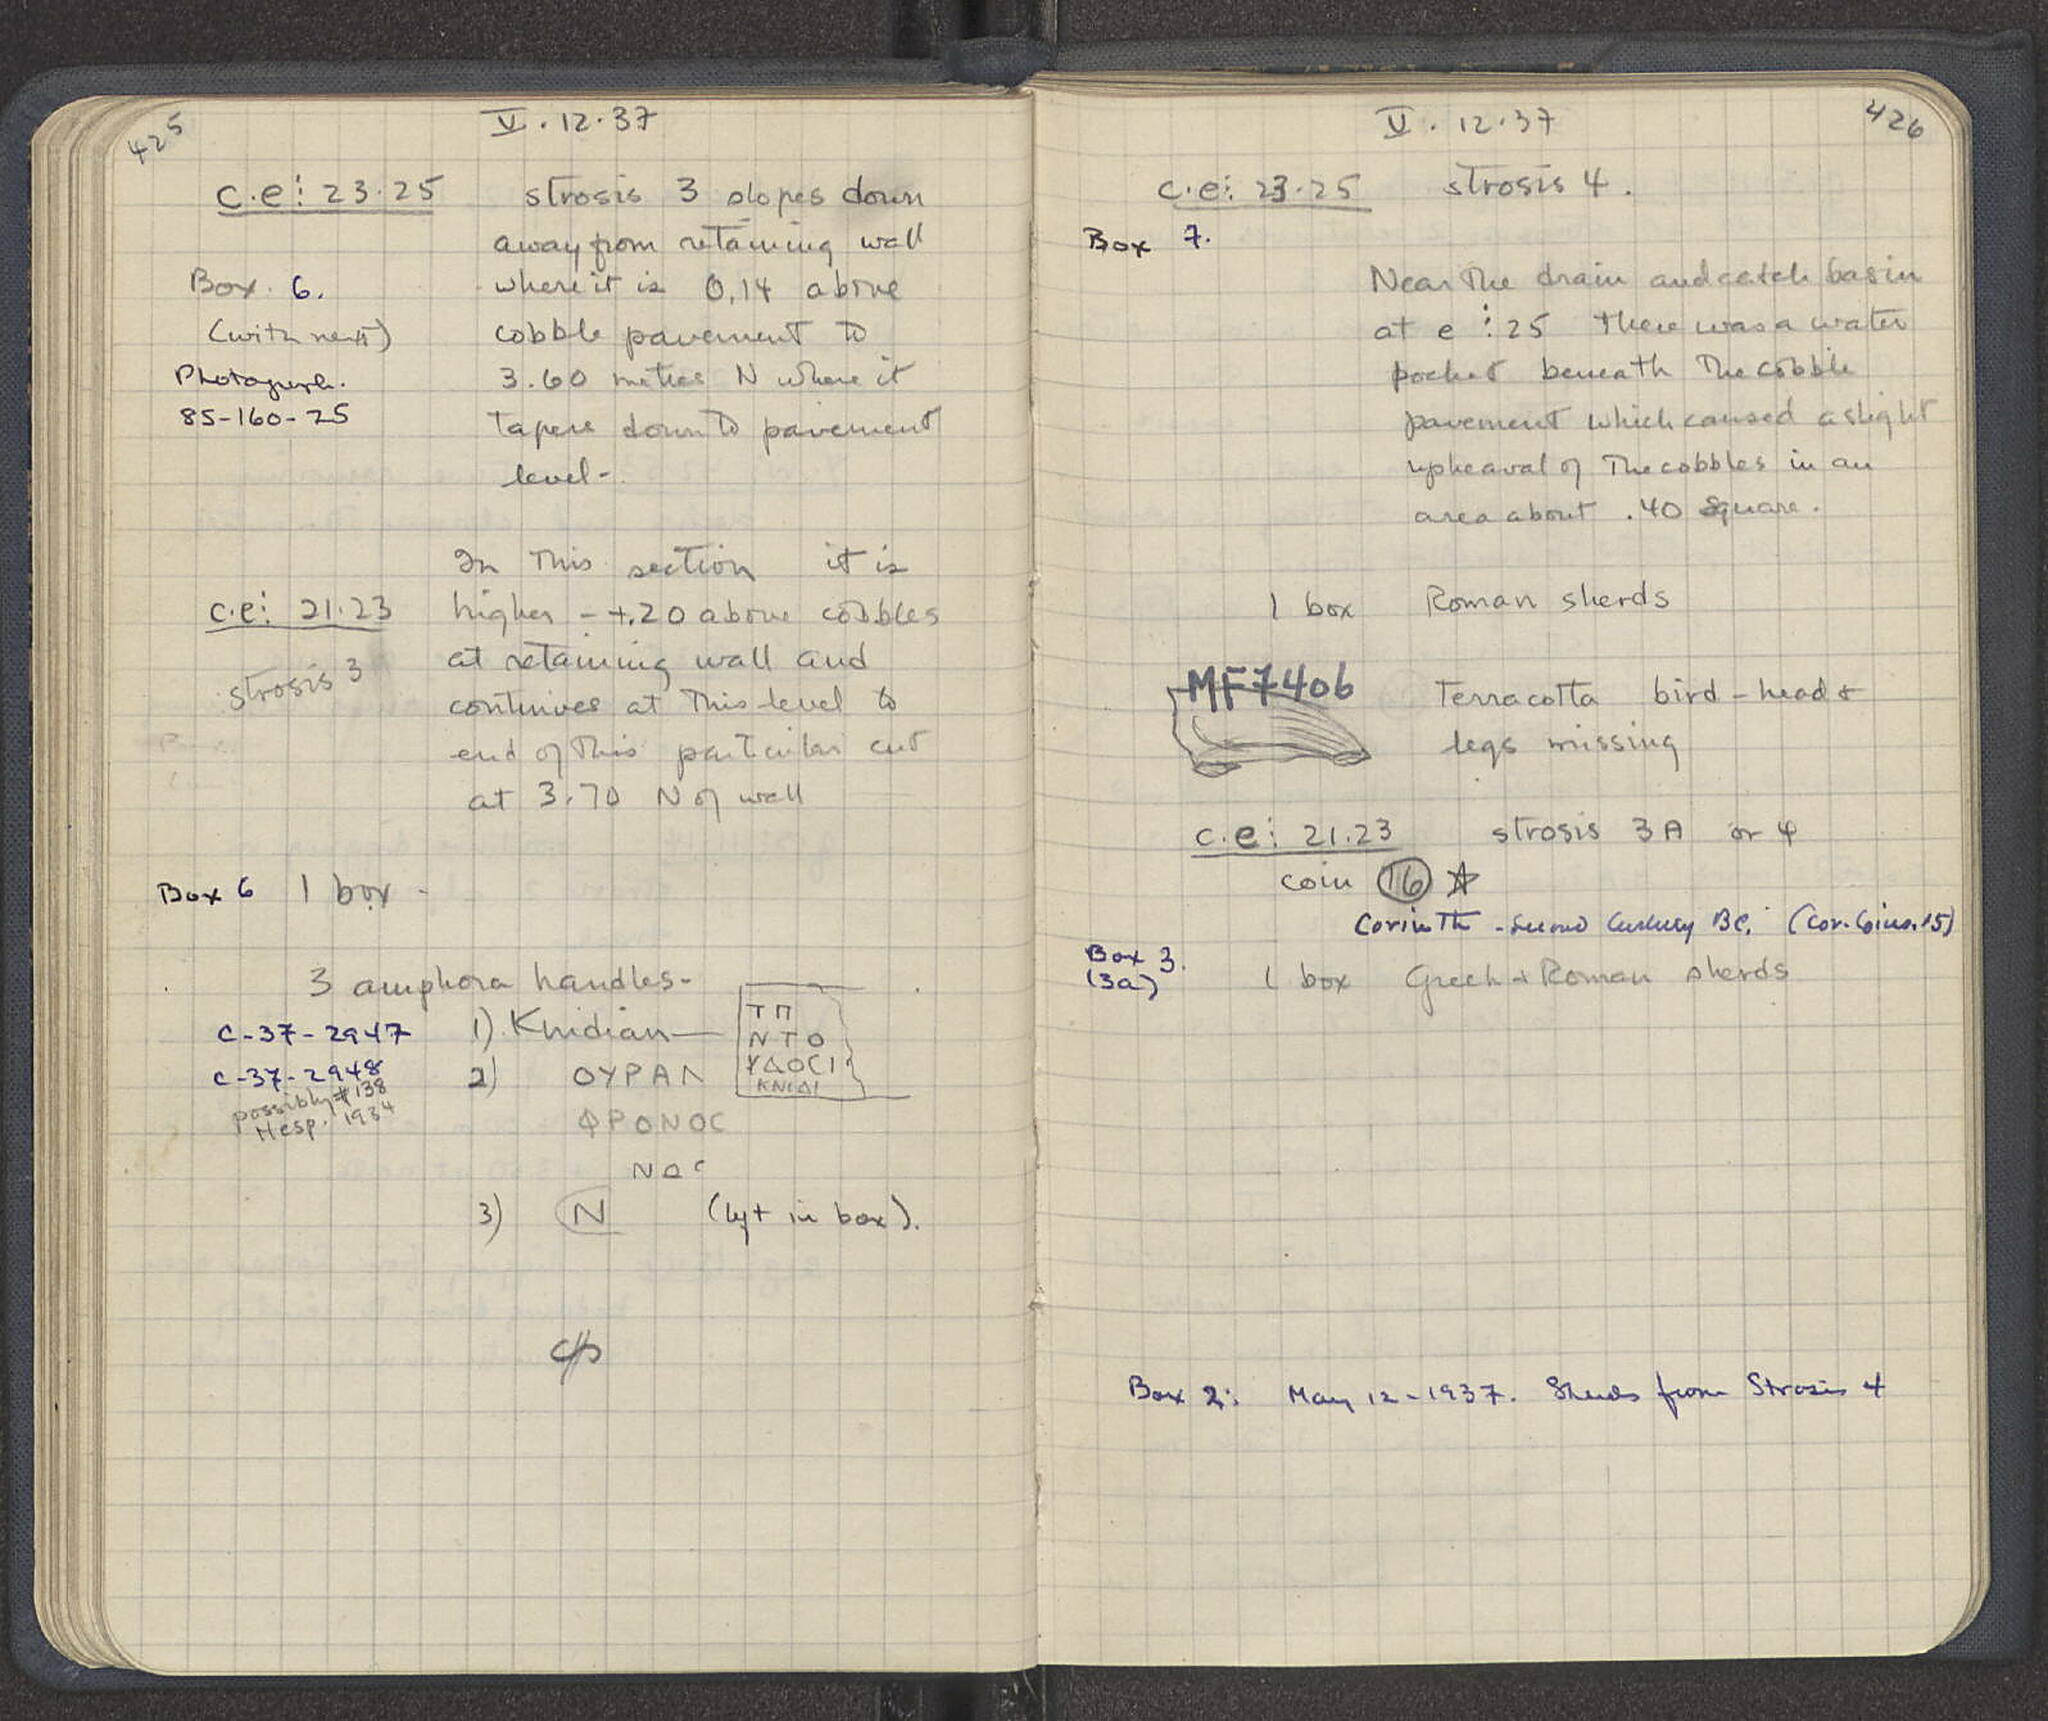 425
V . 12 . 37
c.e: 23.25 strosis 3 slopes down
away from retaining wall
Box 6. where it is 0,14 above
(with next) cobble pavement to
Photograph. 3.60 metres N where it
85-160-25 tapers down to pavement
level-
In This section it is
c.e: 21.23 higher - +.20 above cobbles
strosis 3 at retaining wall and
continues at This level to
end of This particular cut
at 3.70 N of wall
Box 6 1 box -
3 amphora handles-
C-37-2947 1) Knidian—
ΤΠ
ΝΤΟ
ΥΔΟCΙ
ΚΝΙΔΙ
C-37-2948 2) ΟΥΡΑΝ
possibly #138
Hesp. 1934
ΦΡΟΝΟC
3) N (left in box).
426
V . 12 . 37
c.e: 23.25 strosis 4.
Box 7.
Near The drain and catch basin
at e : 25 There was a water
pocket beneath The cobble
pavement which caused a slight
upheaval of The cobbles in an
area about .40 square.
1 box Roman sherds
MF7406 Terracotta bird - head &
legs missing
c.e: 21.23 strosis 3A or 4
coin 16 ☆
Corinth - second Century BC. (Cor. Coins. 15)
Box 3.
(3a) 1 box Greek + Roman sherds
Box 2: May 12 - 1937. Sherds from Strosis 4